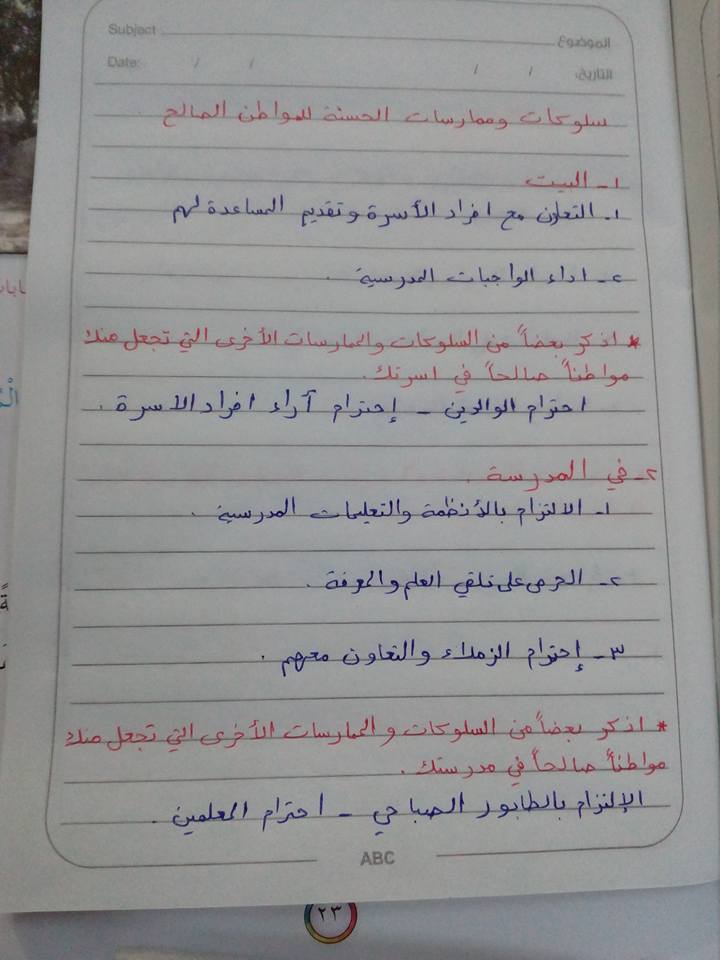 Subject الموضوع
Date: / / / / التاريخ:
سلوكات وممارسات الحسنة للمواطن الصالح .
١- البيت
١- التعاون مع افراد الأسرة وتقديم المساعدة لهم
٢- اداء الواجبات المدرسية .
* اذكر بعضاً من السلوكات والممارسات الأخرى التي تجعل منك
مواطناً صالحاً في اسرتك .
احترام الوالدين - إحترام آراء افراد الأسرة .
٢- في المدرسة .
١- الالتزام بالأنظمة والتعليمات المدرسية .
٢- الحرص على تلقي العلم والمعرفة .
٣- إحترام الزملاء والتعاون معهم .
* اذكر بعضاً من السلوكات والممارسات الأخرى التي تجعل منك
مواطناً صالحاً في مدرستك .
الإلتزام بالطابور الصباحي - احترام المعلمين .
ABC
٢٣